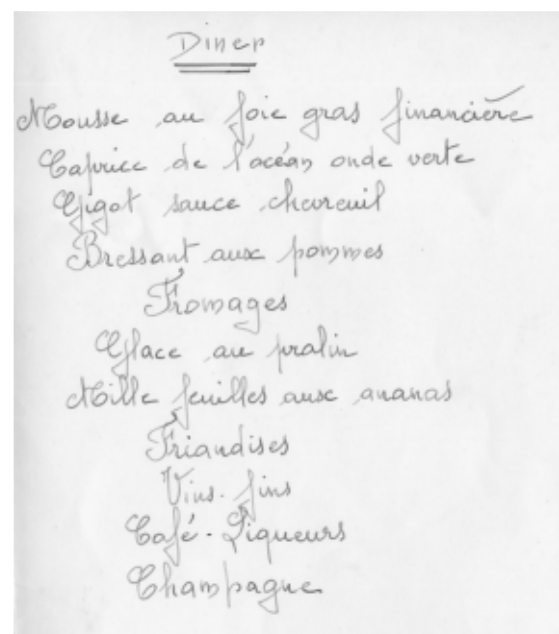 Diner
Mousse au foie gras financière
Caprice de l'océan onde verte
Gigot sauce chevreuil
Bressant aux pommes
Fromages
Glace au pralin
Mille feuilles aux ananas
Friandises
Vins fins
Café - Liqueurs
Champagne